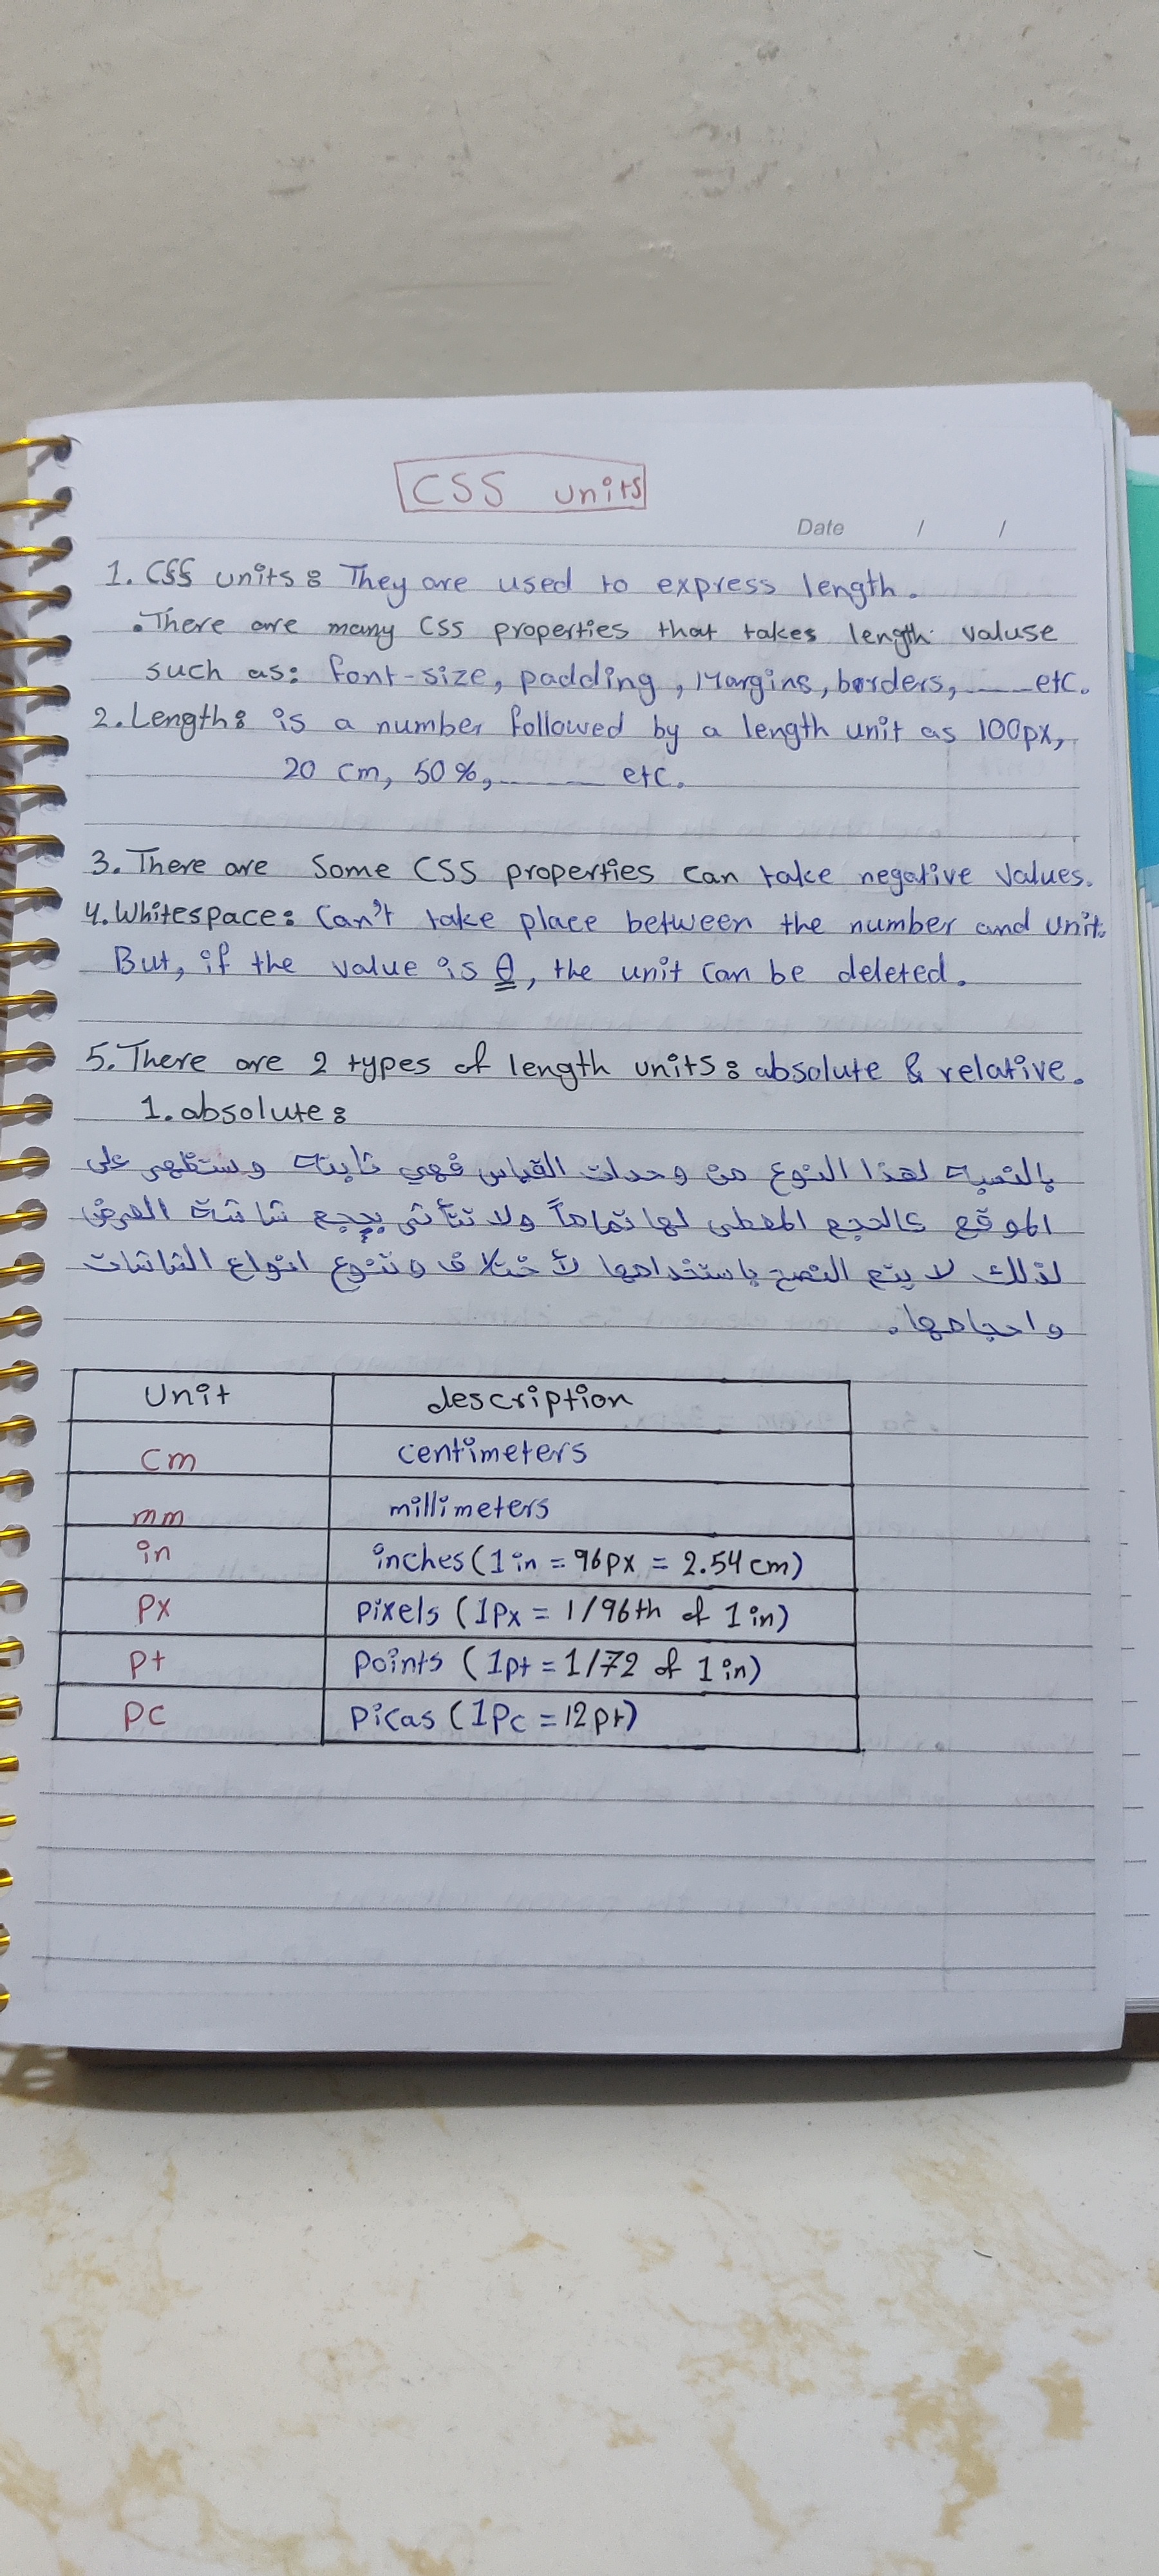 CSS units
Date / /
1. CSS units: They are used to express length.
• There are many CSS properties that takes length valuse
such as: font-size, padding, Margins, borders, ....... etc.
2. Length: is a number followed by a length unit as 100px,
20 cm, 50%, ....... etc.
3. There are Some CSS properties can take negative Values.
4. Whitespace: Can't take place between the number and unit.
But, if the value is 0, the unit can be deleted.
5. There are 2 types of length units: absolute & relative.
1. absolute:
بالنسبة لهذا النوع من وحدات القياس فهي ثابتة وستظهر على
الموقع كالحجم المعطى لها تماماً ولا تتأثر بحجم شاشة العرض
لذلك لا يتم النصح باستخدامها لأختلاف وتنوع انواع الشاشات
واحجامها.
Unit description
cm centimeters
mm millimeters
in inches (1in = 96px = 2.54cm)
px pixels (1px = 1/96th of 1in)
pt points (1pt = 1/72 of 1in)
pc picas (1pc = 12pt)